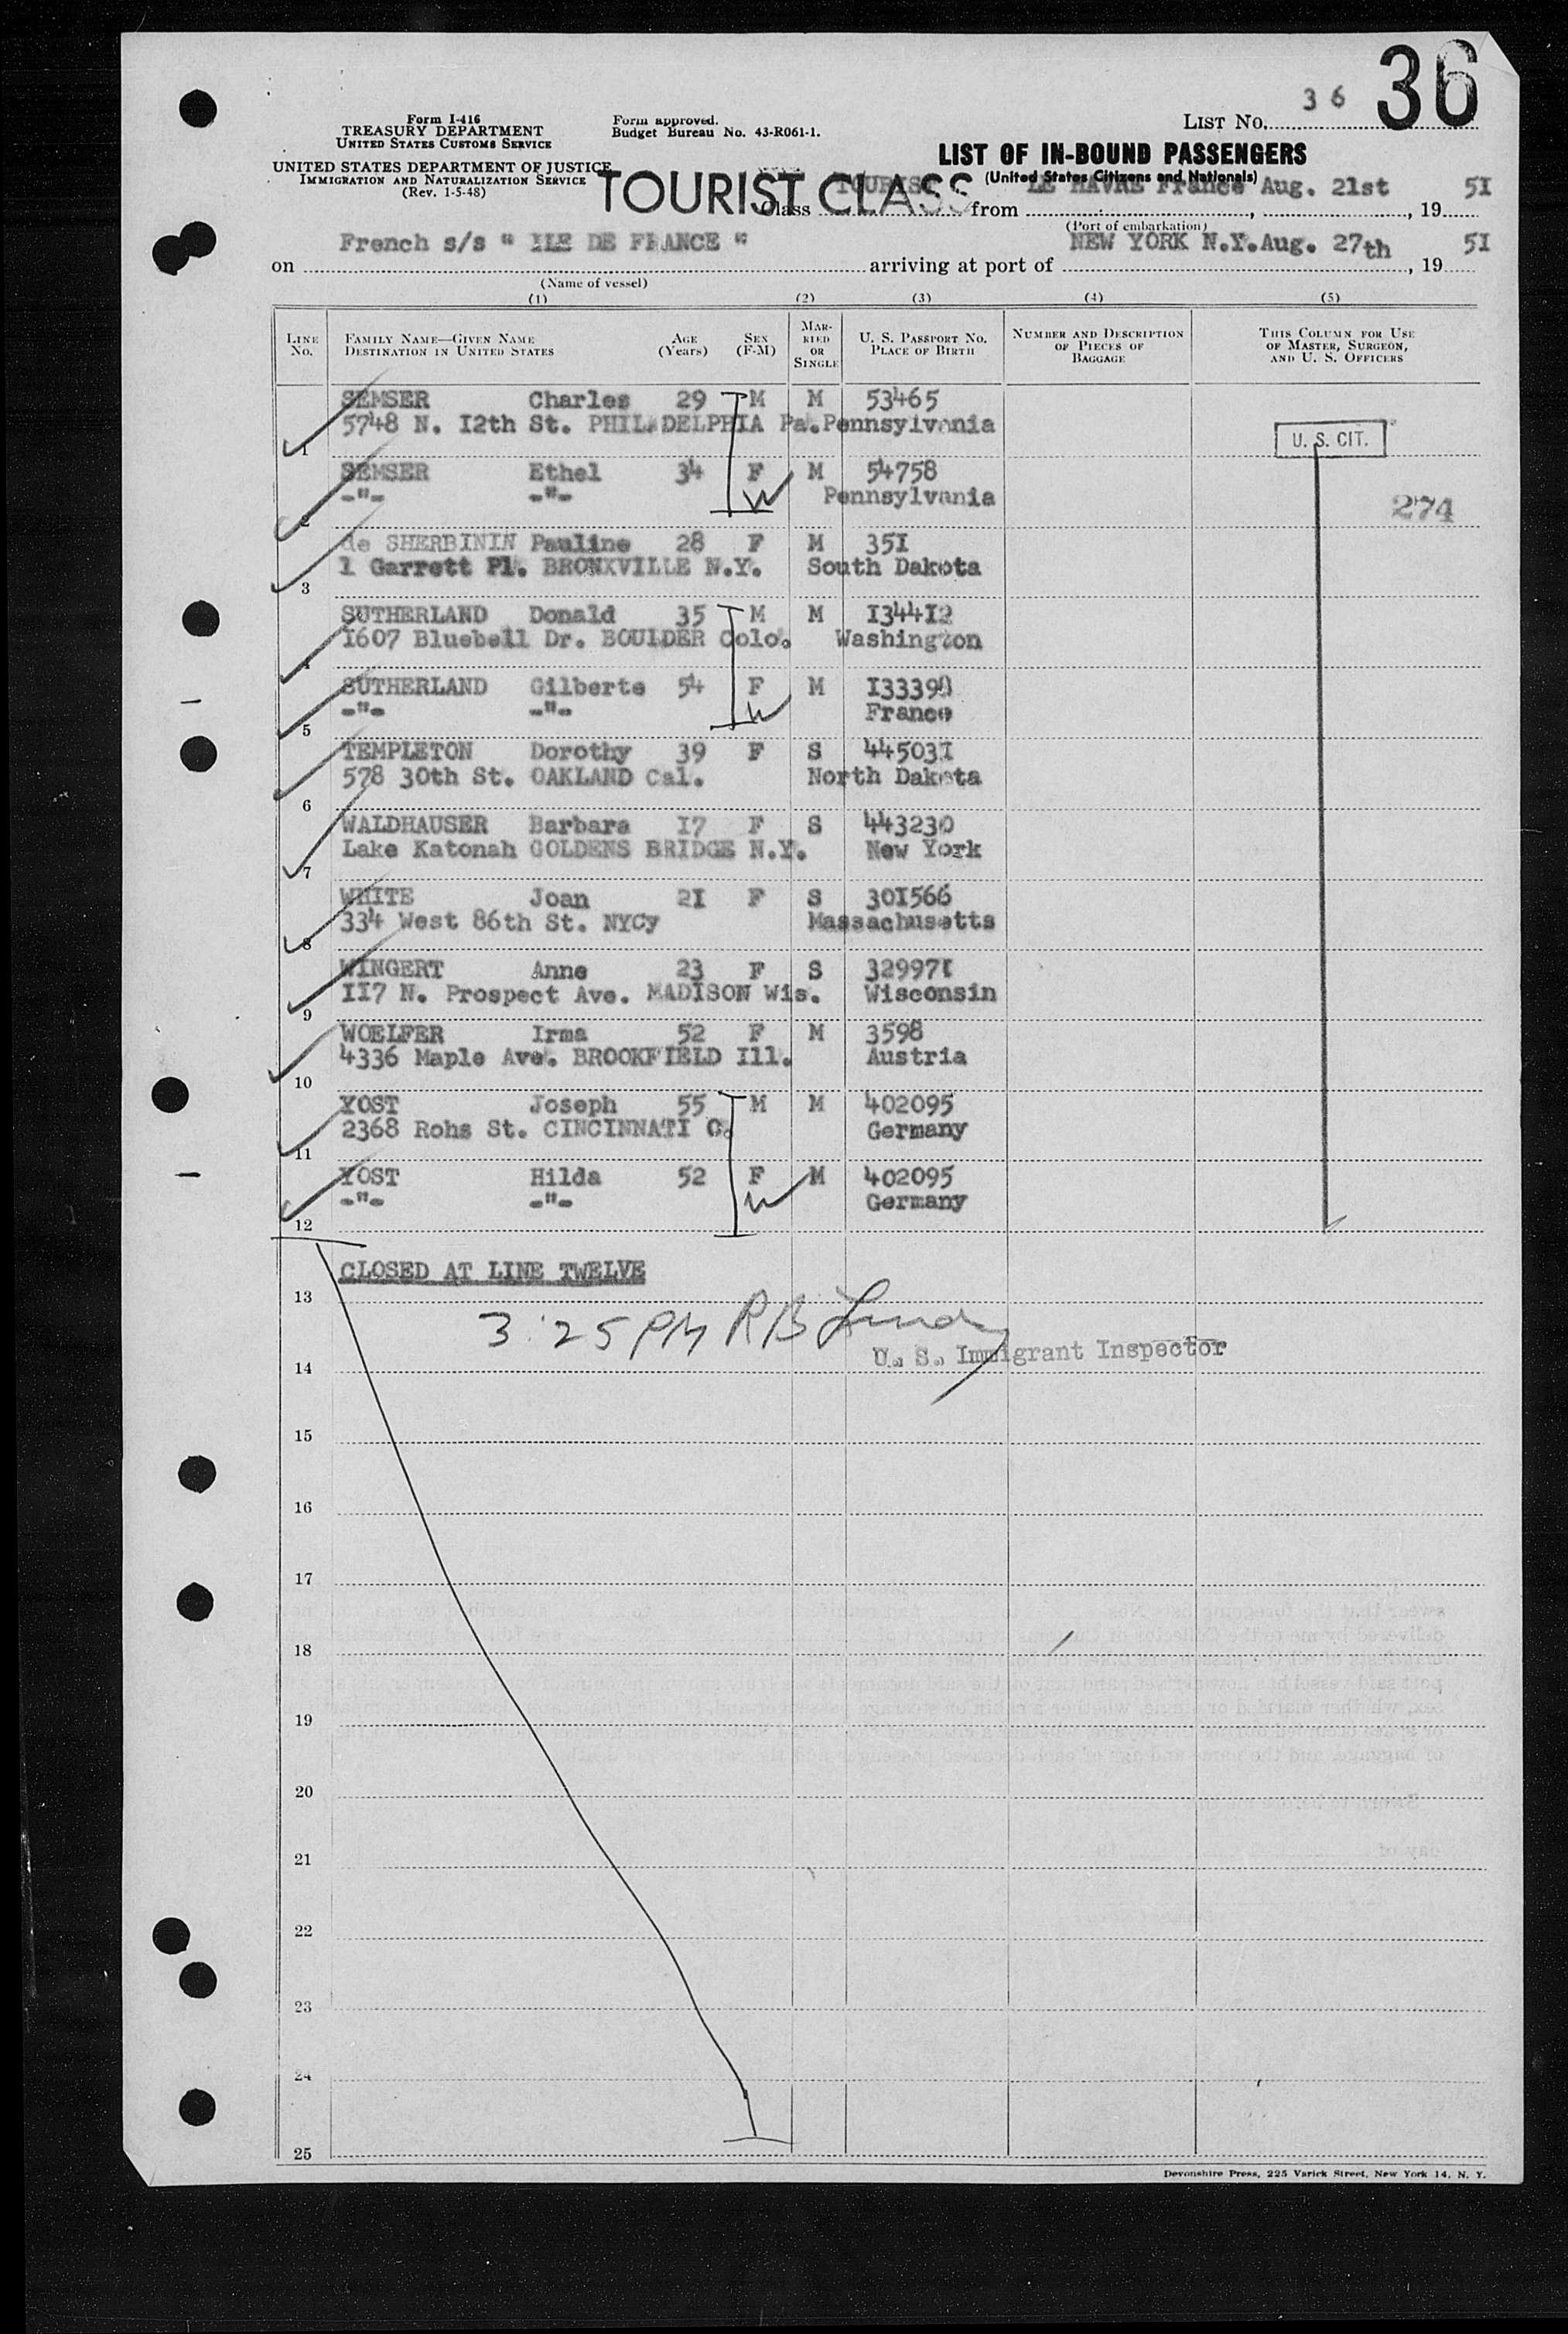 36
Form I-416
TREASURY DEPARTMENT
UNITED STATES CUSTOMS SERVICE
Form approved.
Budget Bureau No. 43-R061-1.
LIST NO. 36
UNITED STATES DEPARTMENT OF JUSTICE
IMMIGRATION AND NATURALIZATION SERVICE
(Rev. 1-5-48)
LIST OF IN-BOUND PASSENGERS
(United States Citizens and Nationals)
TOURIST CLASS
Class TOURIST from LE HAVRE France, Aug. 21st, 19 5I
(Port of embarkation)
on French s/s " ILE DE FRANCE " arriving at port of NEW YORK N.Y. Aug. 27th, 19 5I
(Name of vessel)
(1) (2) (3) (4) (5)
LINE NO.
FAMILY NAME—GIVEN NAME
DESTINATION IN UNITED STATES
AGE (Years)
SEX (F-M)
MARRIED OR SINGLE
U. S. PASSPORT NO.
PLACE OF BIRTH
NUMBER AND DESCRIPTION OF PIECES OF BAGGAGE
THIS COLUMN FOR USE OF MASTER, SURGEON, AND U. S. OFFICERS
SEMSER Charles 29 M M 53465
1 5748 N. I2th St. PHILADELPHIA Pa. Pennsylvania
U. S. CIT.
SEMSER Ethel 34 F M 54758
2 -"- -"- W Pennsylvania
274
de SHERBININ Pauline 28 F M 35I
3 1 Garrett Pl. BRONXVILLE N.Y. South Dakota
SUTHERLAND Donald 35 M M I344I2
4 I607 Bluebell Dr. BOULDER Colo. Washington
SUTHERLAND Gilberte 54 F M
5 -"- -"- W France
TEMPLETON Dorothy 39 F S 44503I
6 578 30th St. OAKLAND Cal. North Dakota
WALDHAUSER Barbara I7 F S 443230
7 Lake Katonah GOLDENS BRIDGE N.Y. New York
WHITE Joan 2I F S 30I566
8 334 West 86th St. NYCy Massachusetts
WINGERT Anne 23 F S 32997I
9 II7 N. Prospect Ave. MADISON Wis. Wisconsin
WOELFER Irma 52 F M 3598
10 4336 Maple Ave. BROOKFIELD Ill. Austria
YOST Joseph 55 M M 402095
11 2368 Rohs St. CINCINNATI O. Germany
YOST Hilda 52 F M 402095
12 -"- -"- W Germany
CLOSED AT LINE TWELVE
13
3:25 PM RB
U. S. Immigrant Inspector
14
15
16
17
18
19
20
21
22
23
24
25
Devonshire Press, 225 Varick Street, New York 14, N. Y.